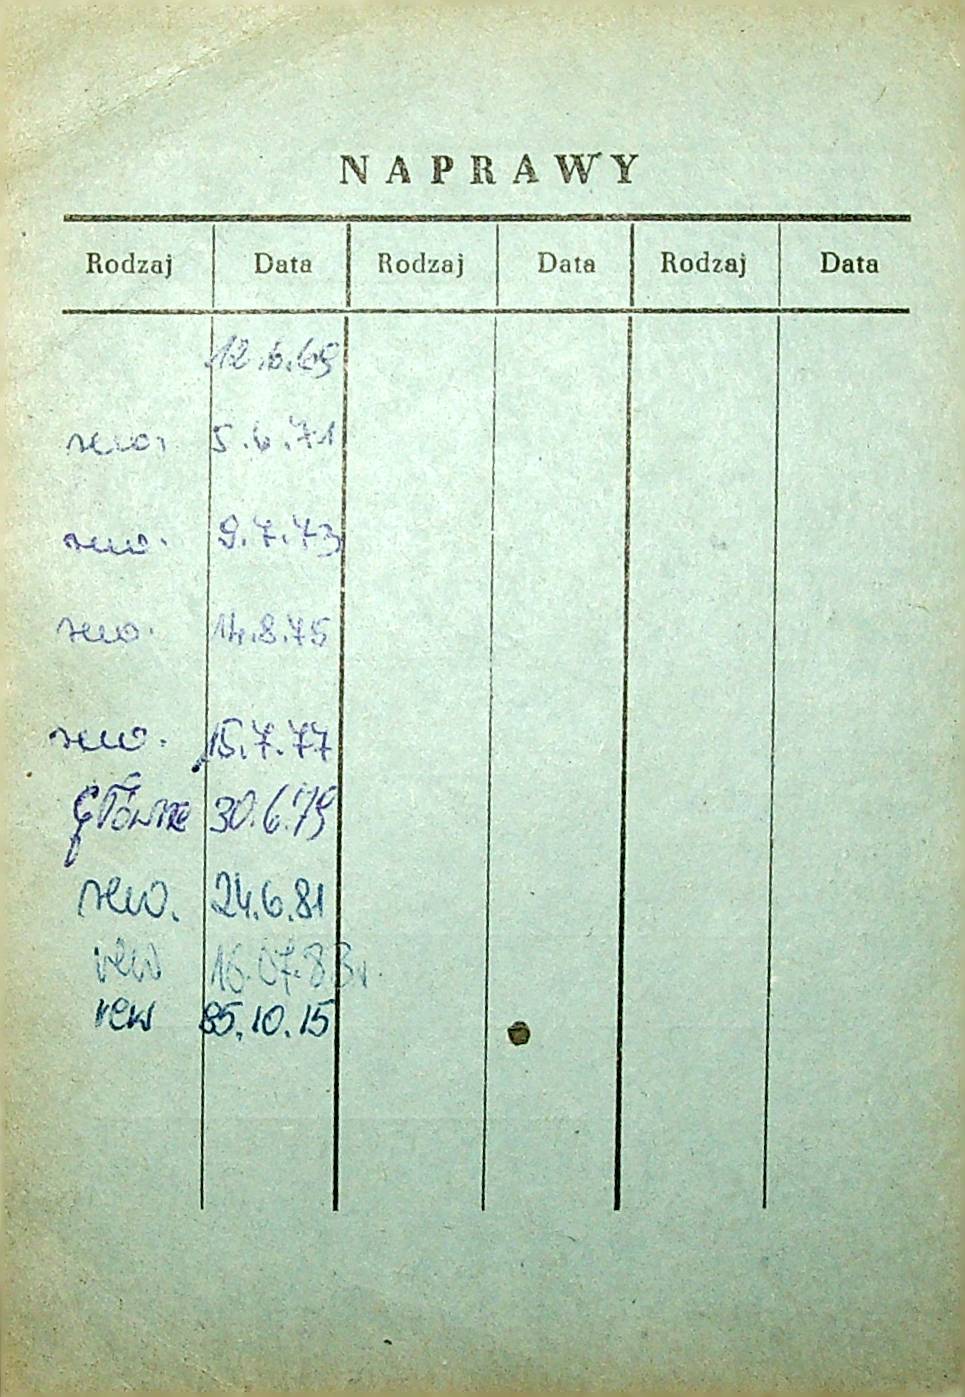 NAPRAWY
Rodzaj Data Rodzaj Data Rodzaj Data
12.6.69
rew. 5.6.71
rew. 9.7.73
rew. 14.8.75
rew. 15.7.77
główne 30.6.79
rew. 24.6.81
rew 16.07.83r.
rew 85.10.15